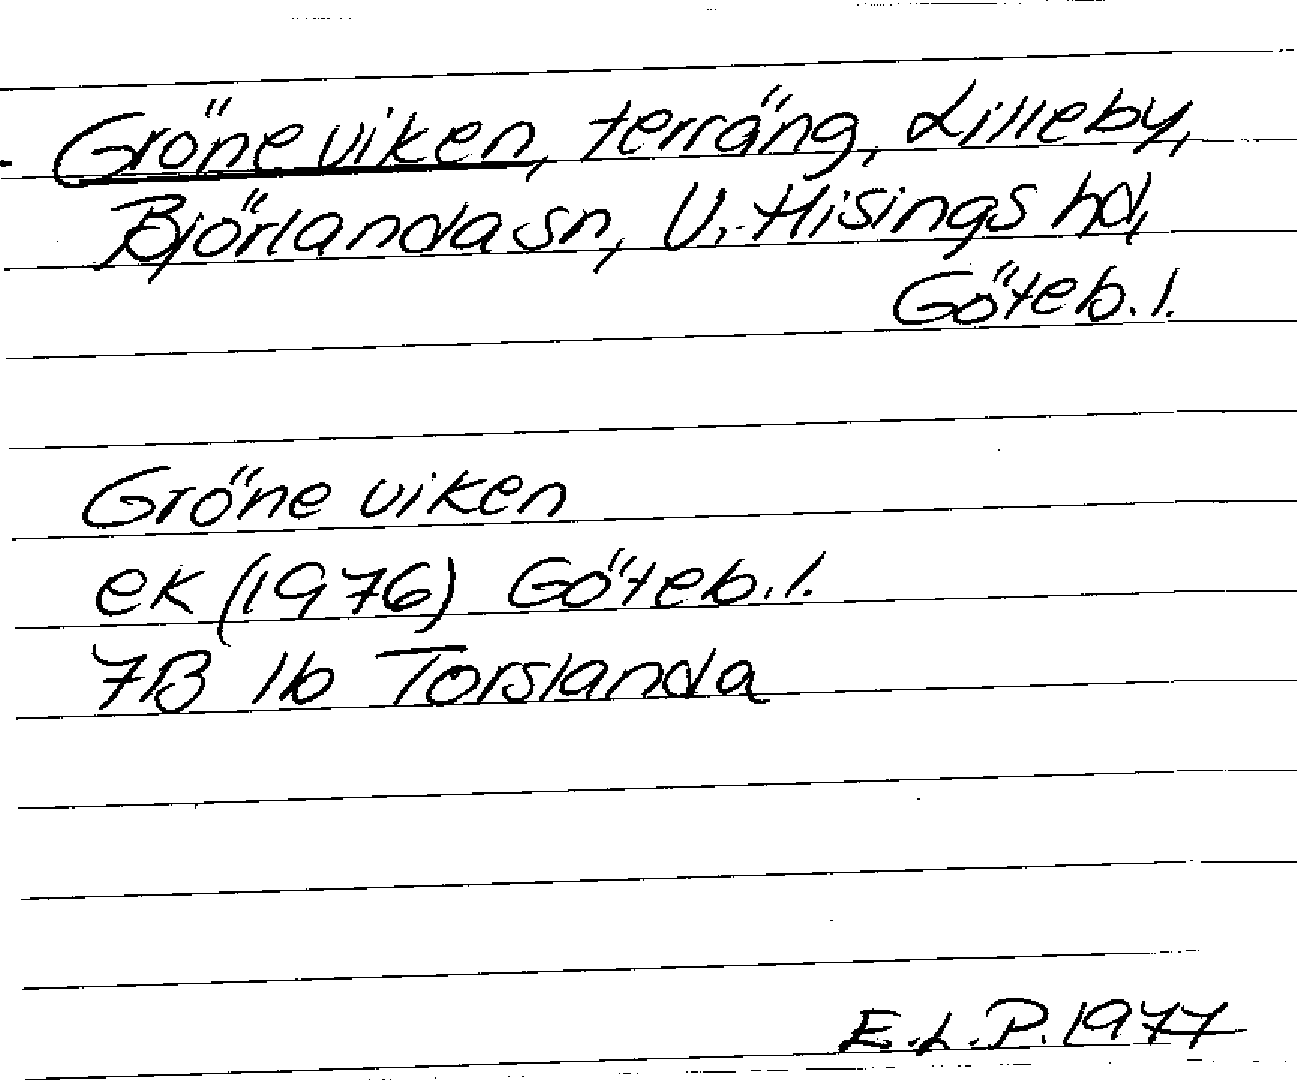 Gröne viken, terräng, Lilleby,
Björlanda sn, V. Hisings hd,
Göteb. l.
Gröne viken
ek (1976) Göteb. l.
7B 1b Torslanda
E.L.P. 1977